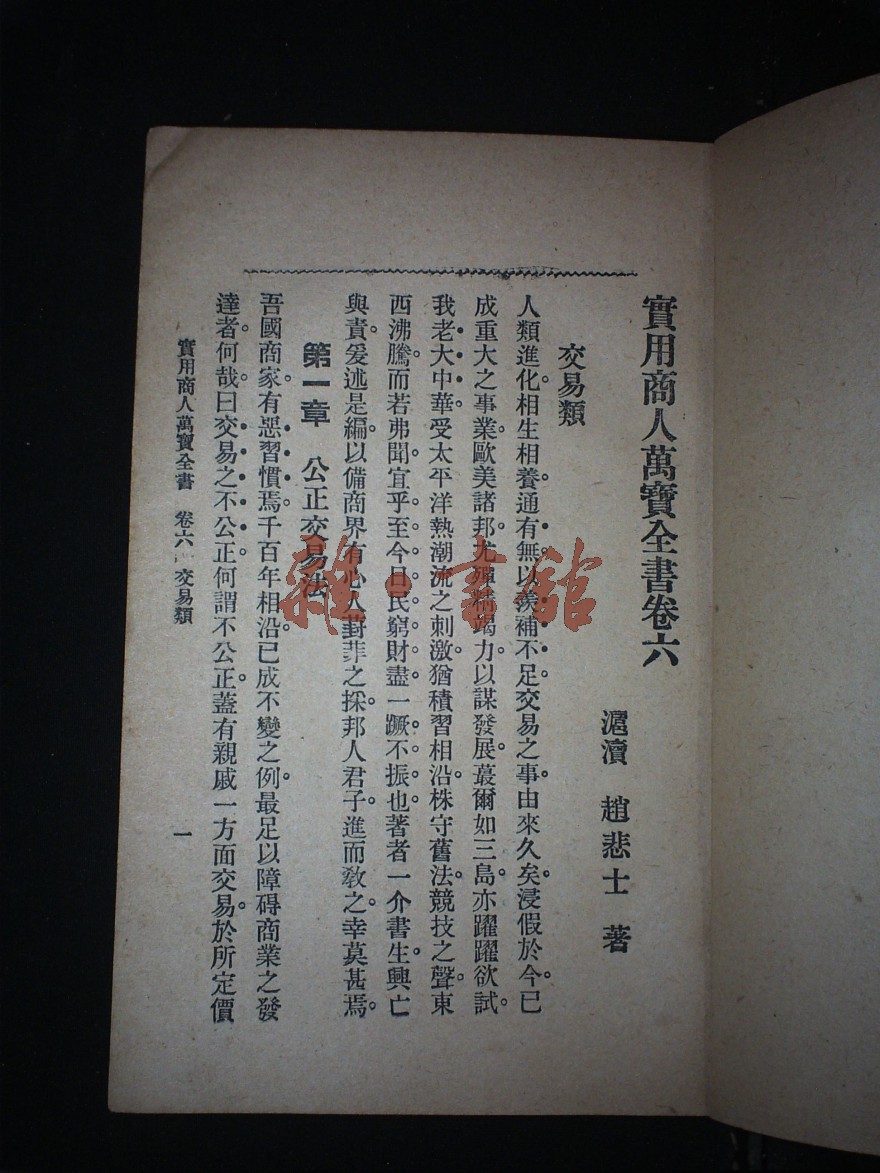 實用商人萬寶全書卷六
滬瀆 趙悲士 著
交易類
人類進化。相生相養。通有無。以羨補不足。交易之事。由來久矣。浸假於今。已
成重大之事業。歐美諸邦。尤殫精竭力以謀發展。蕞爾如三島。亦躍躍欲試。
我老大中華。受太平洋熱潮流之刺激。猶積習相沿。株守舊法。競技之聲。東
西沸騰。而若弗聞。宜乎至今日民窮財盡。一蹶不振也。著者一介書生。興亡
與責。爰述是編。以備商界有心人葑菲之採。邦人君子。進而敎之。幸莫甚焉。
第一章 公正交易法
吾國商家。有惡習慣焉。千百年相沿。已成不變之例。最足以障碍商業之發
達者。何哉。曰交易之不公正。何謂不公正。蓋有親戚一方面交易。於所定價
實用商人萬寶全書 卷六 交易類
一
雜·書舘